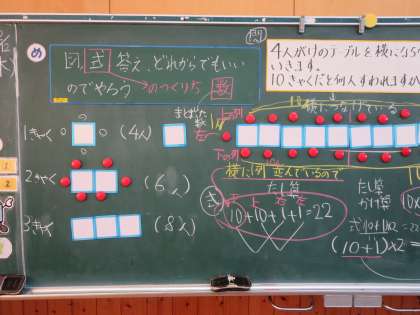 め
図、式 答え、どれからでもいい
のでやろう
式のつくり方
数
問
4人がけのテーブルを横にならべて
いきます。
10きゃくだと何人すわれますか
1きゃく
(4人)
まとまった
数
2きゃく
(6人)
3きゃく
(8人)
上の列
横につなげている
左
下の列
横に列 並んでいるので
式
たし算
上 下 左 右
10+10+1+1=22
たし算
かけ算
式 10+1×2=22
(10+1)×2